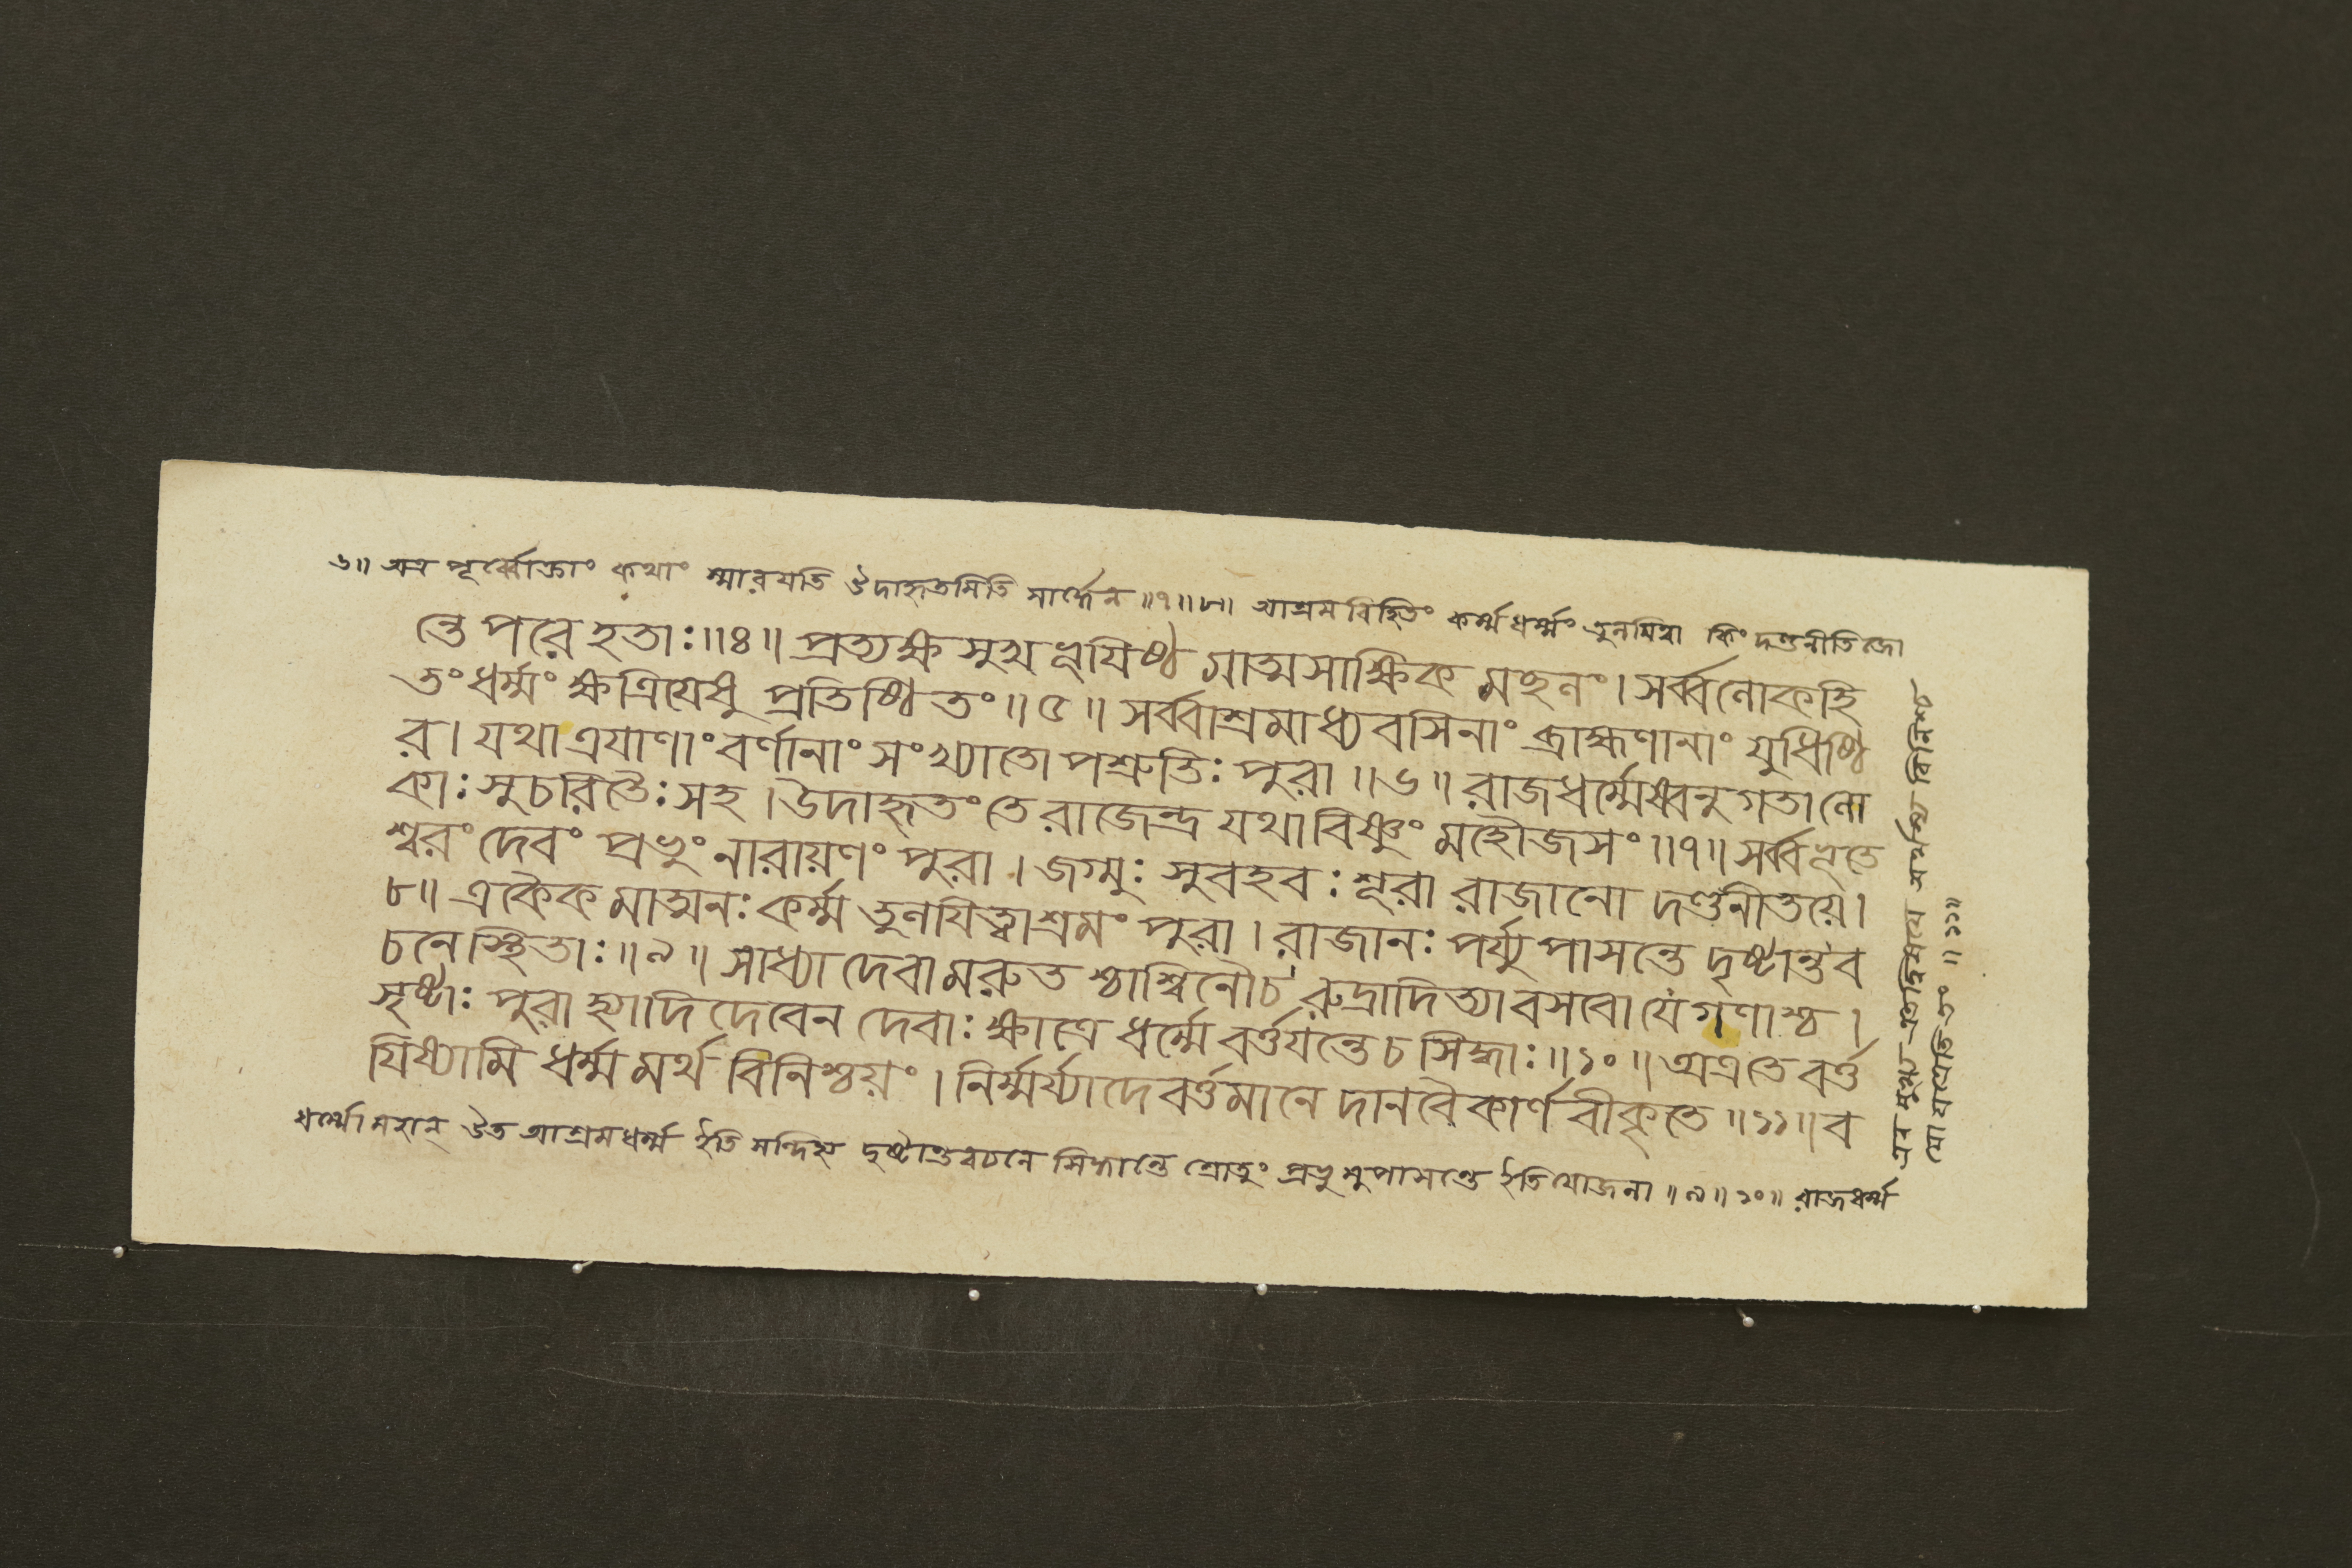 ৬॥ অত্র পূর্ব্বোক্তাং কথাং স্মারযতি উদাহৃতমিতি সার্দ্ধেন ॥৭॥৮॥ আশ্রমবিহিতং কর্ম্মধর্ম্মং তুলযিত্বা কিং দণ্ডনীতিজো
ন্তে পরে হতাঃ ॥৪॥ প্রত্যক্ষ সুখ ভূযিষ্ঠ মাত্মসাক্ষিক মচ্ছলং । সর্ব্বলোকহি
তং ধর্ম্মং ক্ষত্রিযেষু প্রতিষ্ঠিতং ॥৫॥ সর্ব্বাশ্রমাধ্যবসিনাং ব্রাহ্মণানাং যুধিষ্ঠি
র । যথা ত্রযাণাং বর্ণানাং সংখ্যাতোপশ্রুতিঃ পুরা ॥৬॥ রাজধর্ম্মেষ্বনুগতা লো
কাঃ সুচরিতৈঃ সহ । উদাহৃতং তে রাজেন্দ্র যথা বিষ্ণুং মহৌজসং ॥৭॥ সর্ব্বভূতে
শ্বরং দেবং প্রভুং নারায়ণং পুরা । জগ্মুঃ সুবহবঃ শূরা রাজানো দণ্ডনীতয়ে ।
৮॥ একৈক মাত্মনঃ কর্ম্ম তুলযিত্বাশ্রমং পুরা । রাজানঃ পর্য্যুপাসন্তে দৃষ্টান্তব
চনে স্থিতাঃ ॥৯॥ সাধ্যা দেবা মরুত শ্চাশ্বিনৌ চ রুদ্রাদিত্যা বসবো যে গণাশ্চ ।
সৃষ্টাঃ পুরা হ্যাদি দেবেন দেবাঃ ক্ষাত্রে ধর্ম্মে বর্ত্তযন্তে চ সিদ্ধাঃ ॥১০॥ অত্র তে বর্ত্ত
যিষ্যামি ধর্ম্ম মর্থ বিনিশ্চয়ং । নির্ম্মর্য্যাদে বর্ত্তমানে দানবৈকার্ণবীকৃতে ॥১১॥ ব
ধর্ম্মো মহান্ উত আশ্রমধর্ম্ম ইতি সন্দিহ্য দৃষ্টান্তবচনে সিদ্ধান্তে শ্রোতুং প্রভুমুপাসন্তে ইতি যোজনা ॥৯॥১০॥ রাজধর্ম্ম